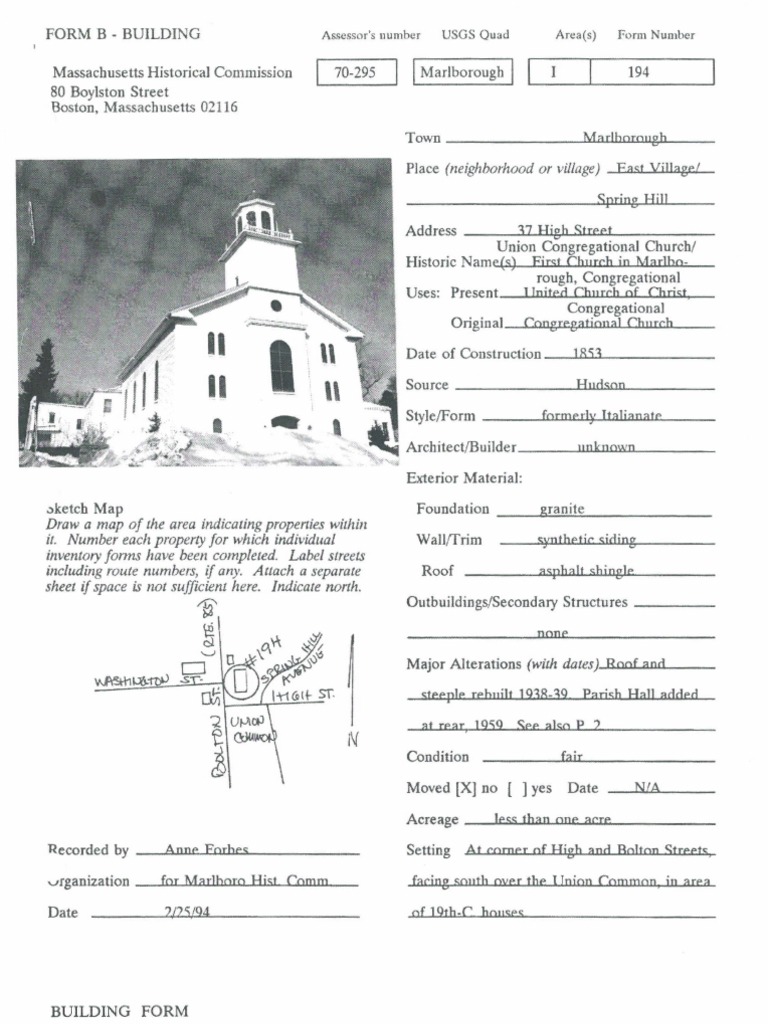 FORM B - BUILDING
Assessor's number USGS Quad Area(s) Form Number
Massachusetts Historical Commission
80 Boylston Street
Boston, Massachusetts 02116
70-295 Marlborough I 194
Town Marlborough
Place (neighborhood or village) East Village/
Spring Hill
Address 37 High Street
Union Congregational Church/
Historic Name(s) First Church in Marlbo-
rough, Congregational
Uses: Present United Church of Christ,
Congregational
Original Congregational Church
Date of Construction 1853
Source Hudson
Style/Form formerly Italianate
Architect/Builder unknown
Exterior Material:
Foundation granite
Wall/Trim synthetic siding
Roof asphalt shingle
Outbuildings/Secondary Structures
none
Major Alterations (with dates) Roof and
steeple rebuilt 1938-39. Parish Hall added
at rear, 1959. See also P. 2
Condition fair
Moved [X] no [ ] yes Date N/A
Acreage less than one acre
Setting At corner of High and Bolton Streets,
facing south over the Union Common, in area
of 19th-C. houses
Sketch Map
Draw a map of the area indicating properties within
it. Number each property for which individual
inventory forms have been completed. Label streets
including route numbers, if any. Attach a separate
sheet if space is not sufficient here. Indicate north.
(RTE. 85)
#194
SPRING HILL
AVENUE
WASHINGTON ST.
HIGH ST.
BOLTON ST.
UNION
COMMON
N
Recorded by Anne Forbes
Organization for Marlboro Hist. Comm.
Date 2/25/94
BUILDING FORM